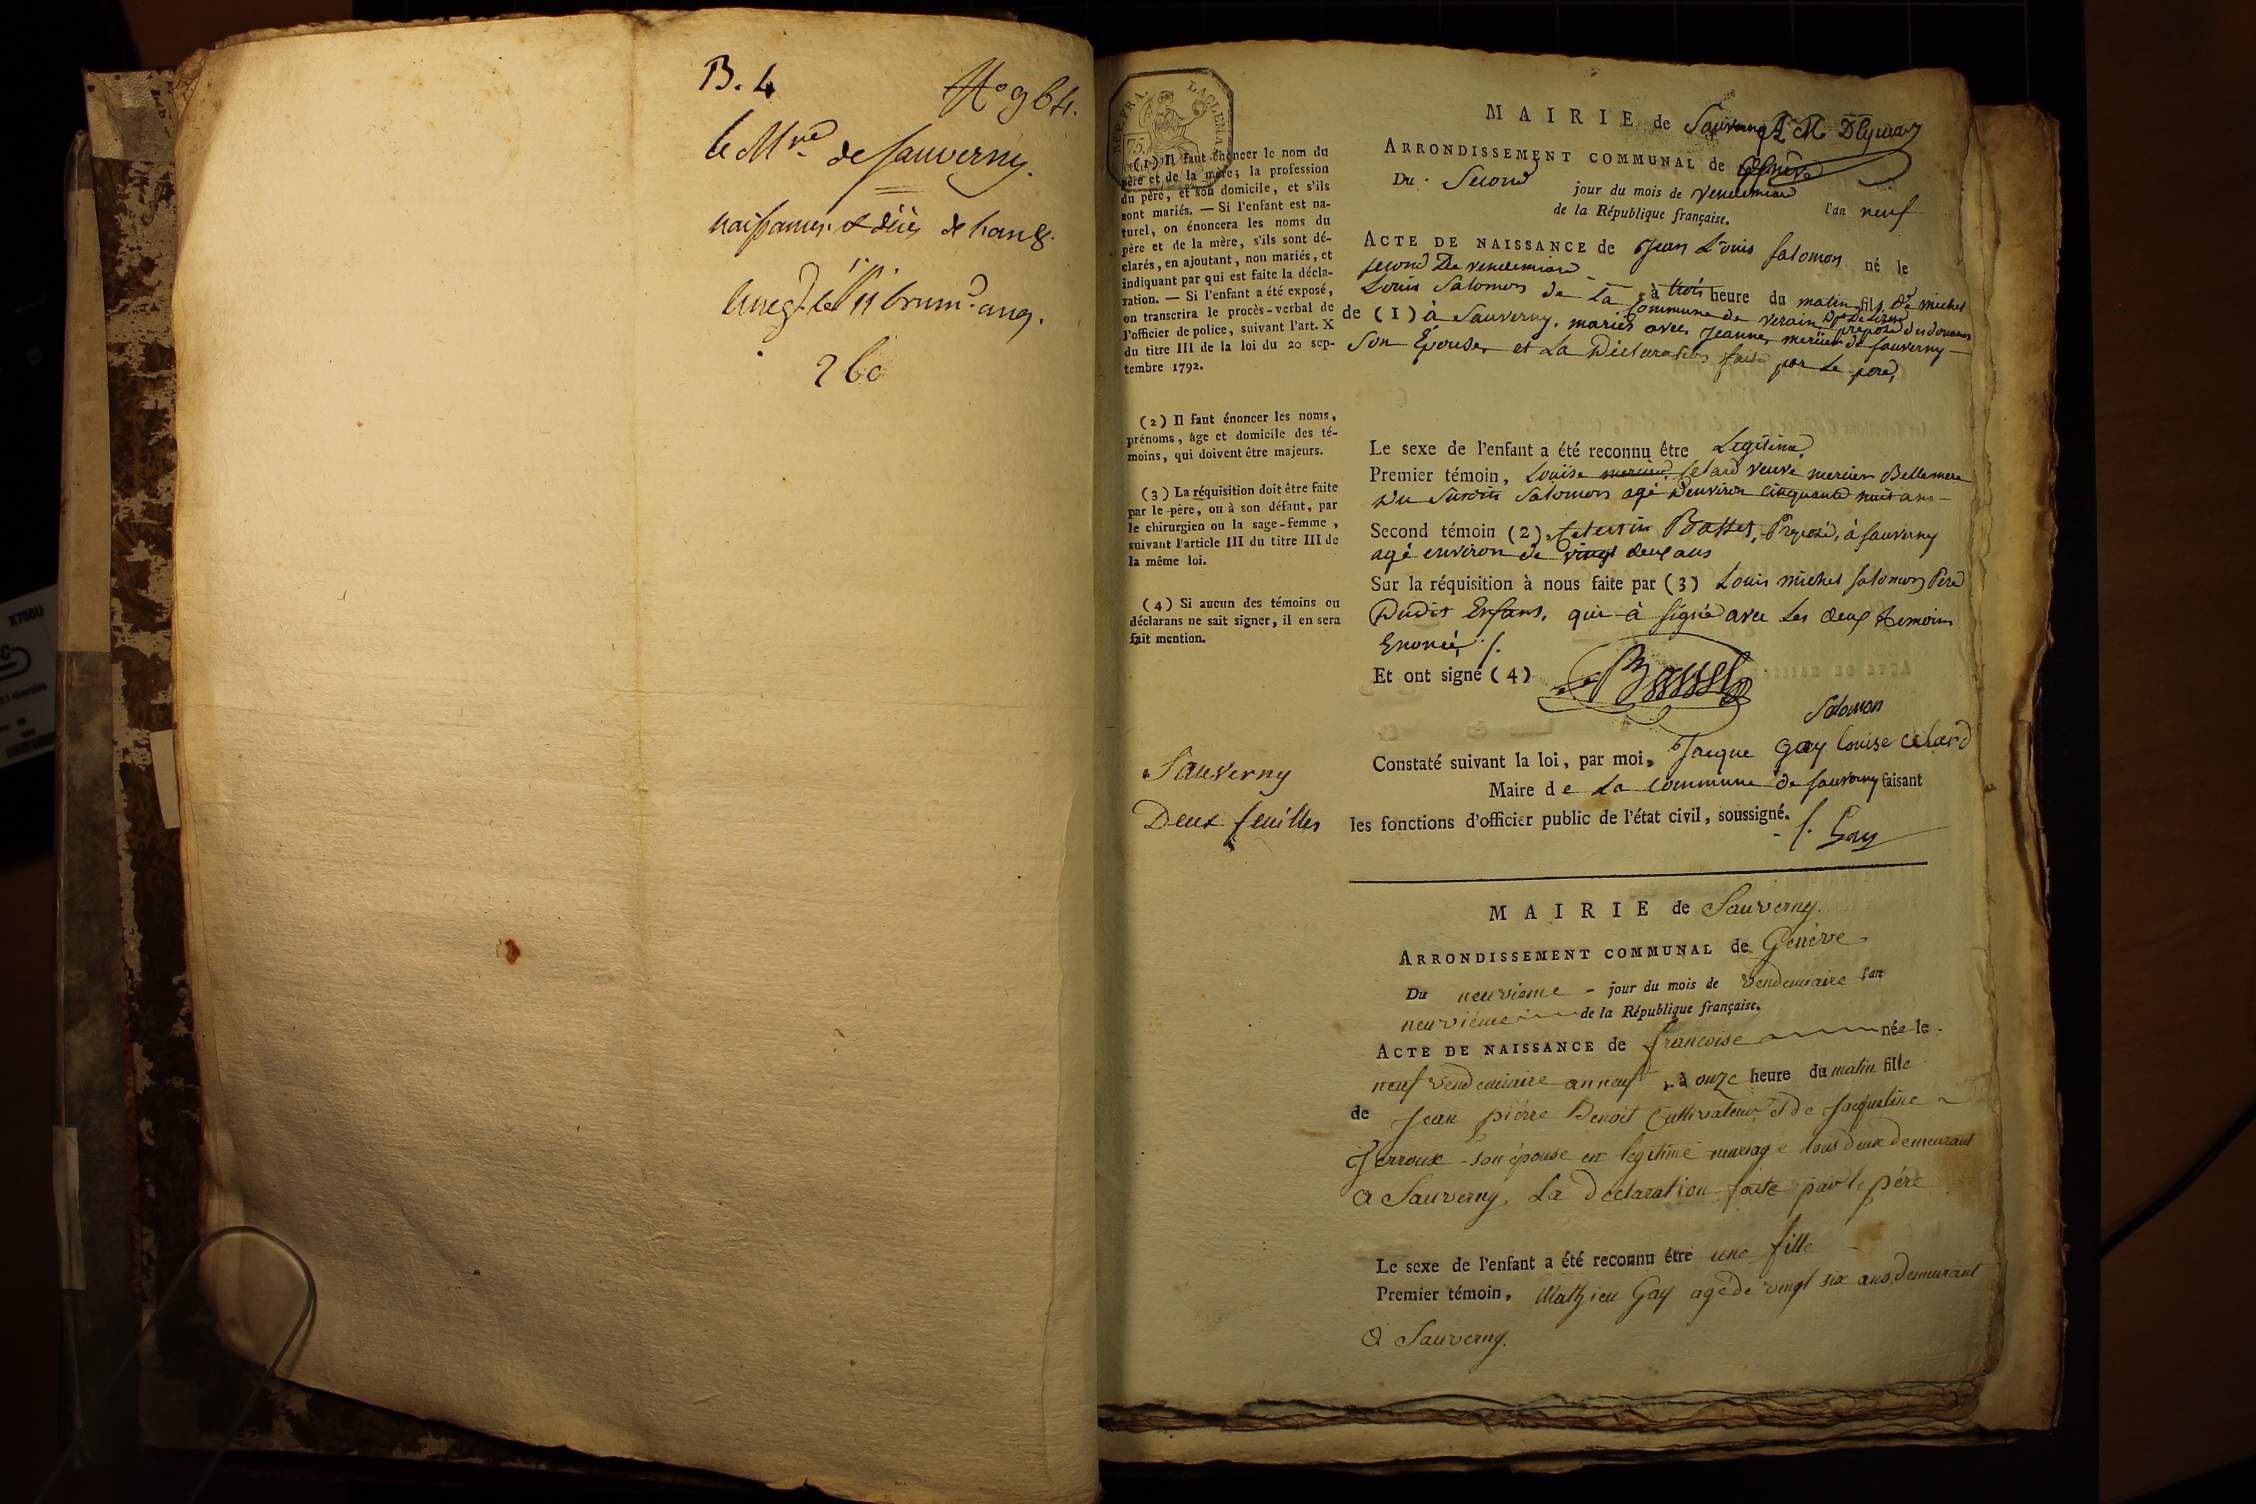 B. 4
N° 964.
le M.re de Sauverny.
naissances & décès de l'an 8.
Enreg.t le 11 brum.re an 9.
260
REP. FRA.
75.
(1) Il faut énoncer le nom du
père et de la mère; la profession
du père, et son domicile, et s'ils
sont mariés. — Si l'enfant est na-
turel, on énoncera les noms du
père et de la mère, s'ils sont dé-
clarés, en ajoutant, non mariés, et
indiquant par qui est faite la décla-
ration. — Si l'enfant a été exposé,
on transcrira le procès-verbal de
l'officier de police, suivant l'art. X
du titre III de la loi du 20 sep-
tembre 1792.
(2) Il faut énoncer les noms,
prénoms, âge et domicile des té-
moins, qui doivent être majeurs.
(3) La réquisition doit être faite
par le père, ou à son défaut, par
le chirurgien ou la sage-femme,
suivant l'article III du titre III de
la même loi.
(4) Si aucun des témoins ou
déclarans ne sait signer, il en sera
fait mention.
Sauverny
Deux feuilles
MAIRIE de Sauverny
ARRONDISSEMENT COMMUNAL de Genève
Du Second jour du mois de vendemiare l'an neuf
de la République française.
ACTE DE NAISSANCE de Jean Louis Salomon né le
second De vendemiare à trois heure du matin fils de michel
Louis Salomon de La Commune de
de (1) à Sauverny, mariés avec Jeanne mercier de Sauverny
Son Épouse, et La Déclaration faite par Le père,
Le sexe de l'enfant a été reconnu être Legitime
Premier témoin, Louise Celard veuve mercier Bellemere
Du Susdit Salomon agé D'environ cinquante huit ans
Second témoin (2) Basset, Préposé, à Sauverny
agé environ de vingt deux ans
Sur la réquisition à nous faite par (3) Louis michel Salomon Père
Dudit Enfans, qui à signé avec Les deux temoins
Enoncé /.
Et ont signé (4) Basset
Salomon
Constaté suivant la loi, par moi, Jacque Gay Louise Celard
Maire de La Commune de Sauverny faisant
les fonctions d'officier public de l'état civil, soussigné.
J. Gay
MAIRIE de Sauverny.
ARRONDISSEMENT COMMUNAL de Genève
Du neuvieme - jour du mois de Vendemiaire l'an
neuvieme de la République française.
ACTE DE NAISSANCE de francoise née le
neuf Vendemiaire an neuf, à onze heure du matin fille
de Jean pierre Benoit Cultivateur et de Jacqueline
Perroux son épouse en legitime mariage tous deux demeurant
a Sauverny. La declaration faite par le pére
Le sexe de l'enfant a été reconnu être une fille
Premier témoin, Mathieu Gay agé de vingt six ans, demeurant
a Sauverny.